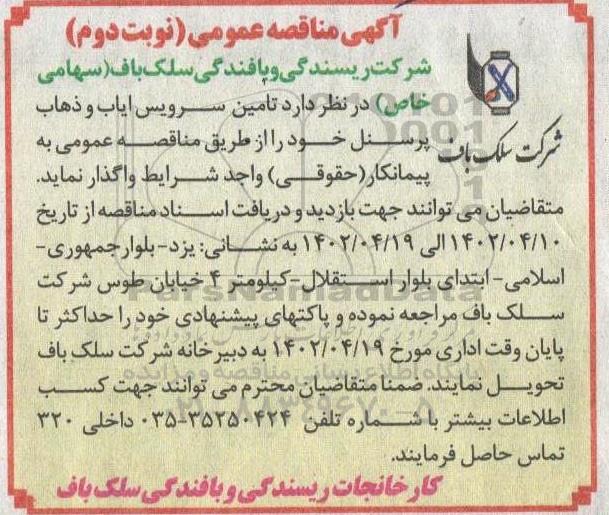 آگهی مناقصه عمومی (نوبت دوم)
شرکت ریسندگی وبافندگی سلک باف (سهامی
خاص) در نظر دارد تامین سرویس ایاب و ذهاب
پرسنل خود را از طریق مناقصه عمومی به
شرکت سلک باف
پیمانکار (حقوقی) واجد شرایط واگذار نماید.
متقاضیان می توانند جهت بازدید و دریافت اسناد مناقصه از تاریخ
۱۴۰۲/۰۴/۱۰ الی ۱۴۰۲/۰۴/۱۹ به نشانی: یزد-بلوار جمهوری-
اسلامی- ابتدای بلوار استقلال-کیلومتر ۴ خیابان طوس شرکت
سلک باف مراجعه نموده و پاکتهای پیشنهادی خود را حداکثر تا
پایان وقت اداری مورخ ۱۴۰۲/۰۴/۱۹ به دبیرخانه شرکت سلک باف
تحویل نمایند. ضمنا متقاضیان محترم می توانند جهت کسب
اطلاعات بیشتر با شماره تلفن ۳۵۲۵۰۴۲۴-۰۳۵ داخلی ۳۲۰
تماس حاصل فرمایند.
کارخانجات ریسندگی و بافندگی سلک باف
ParsNamadData
پایگاه اطلاع رسانی مناقصه و مزایده